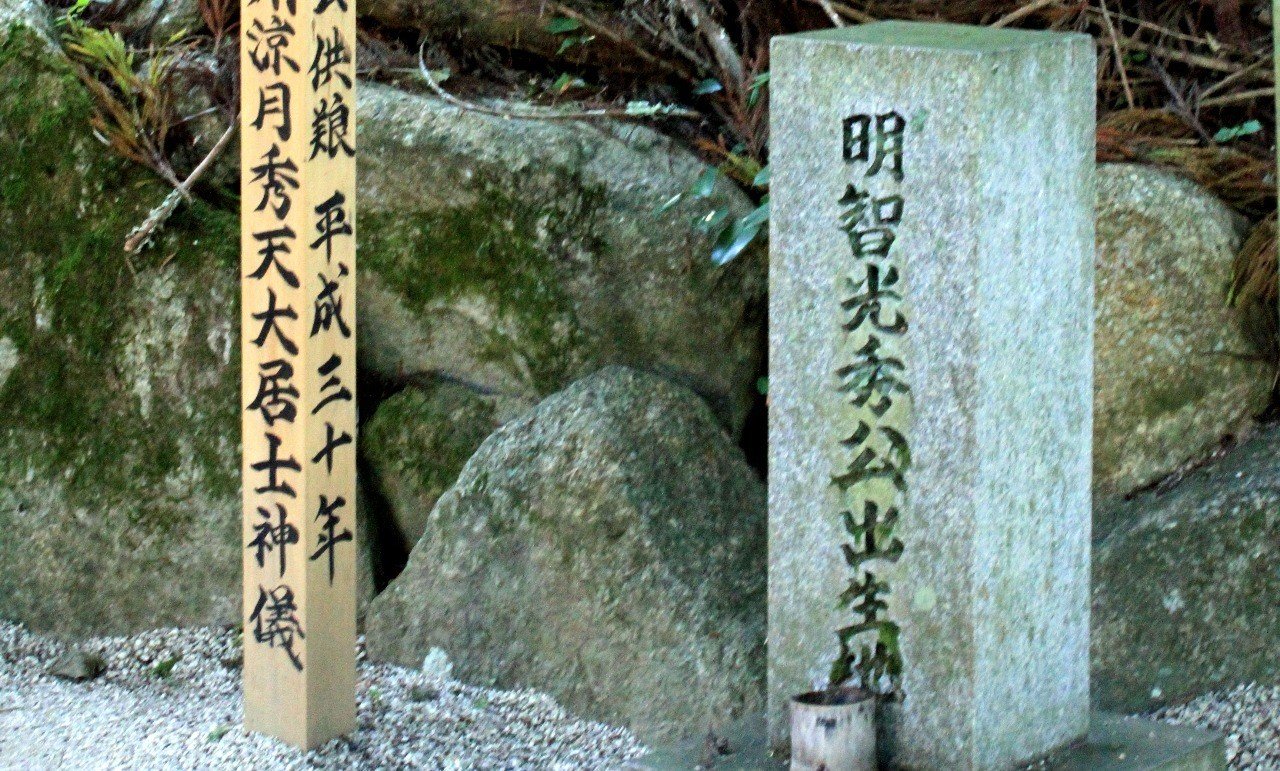 明智光秀公出生地
供 平成三十年
涼月秀天大居士神儀